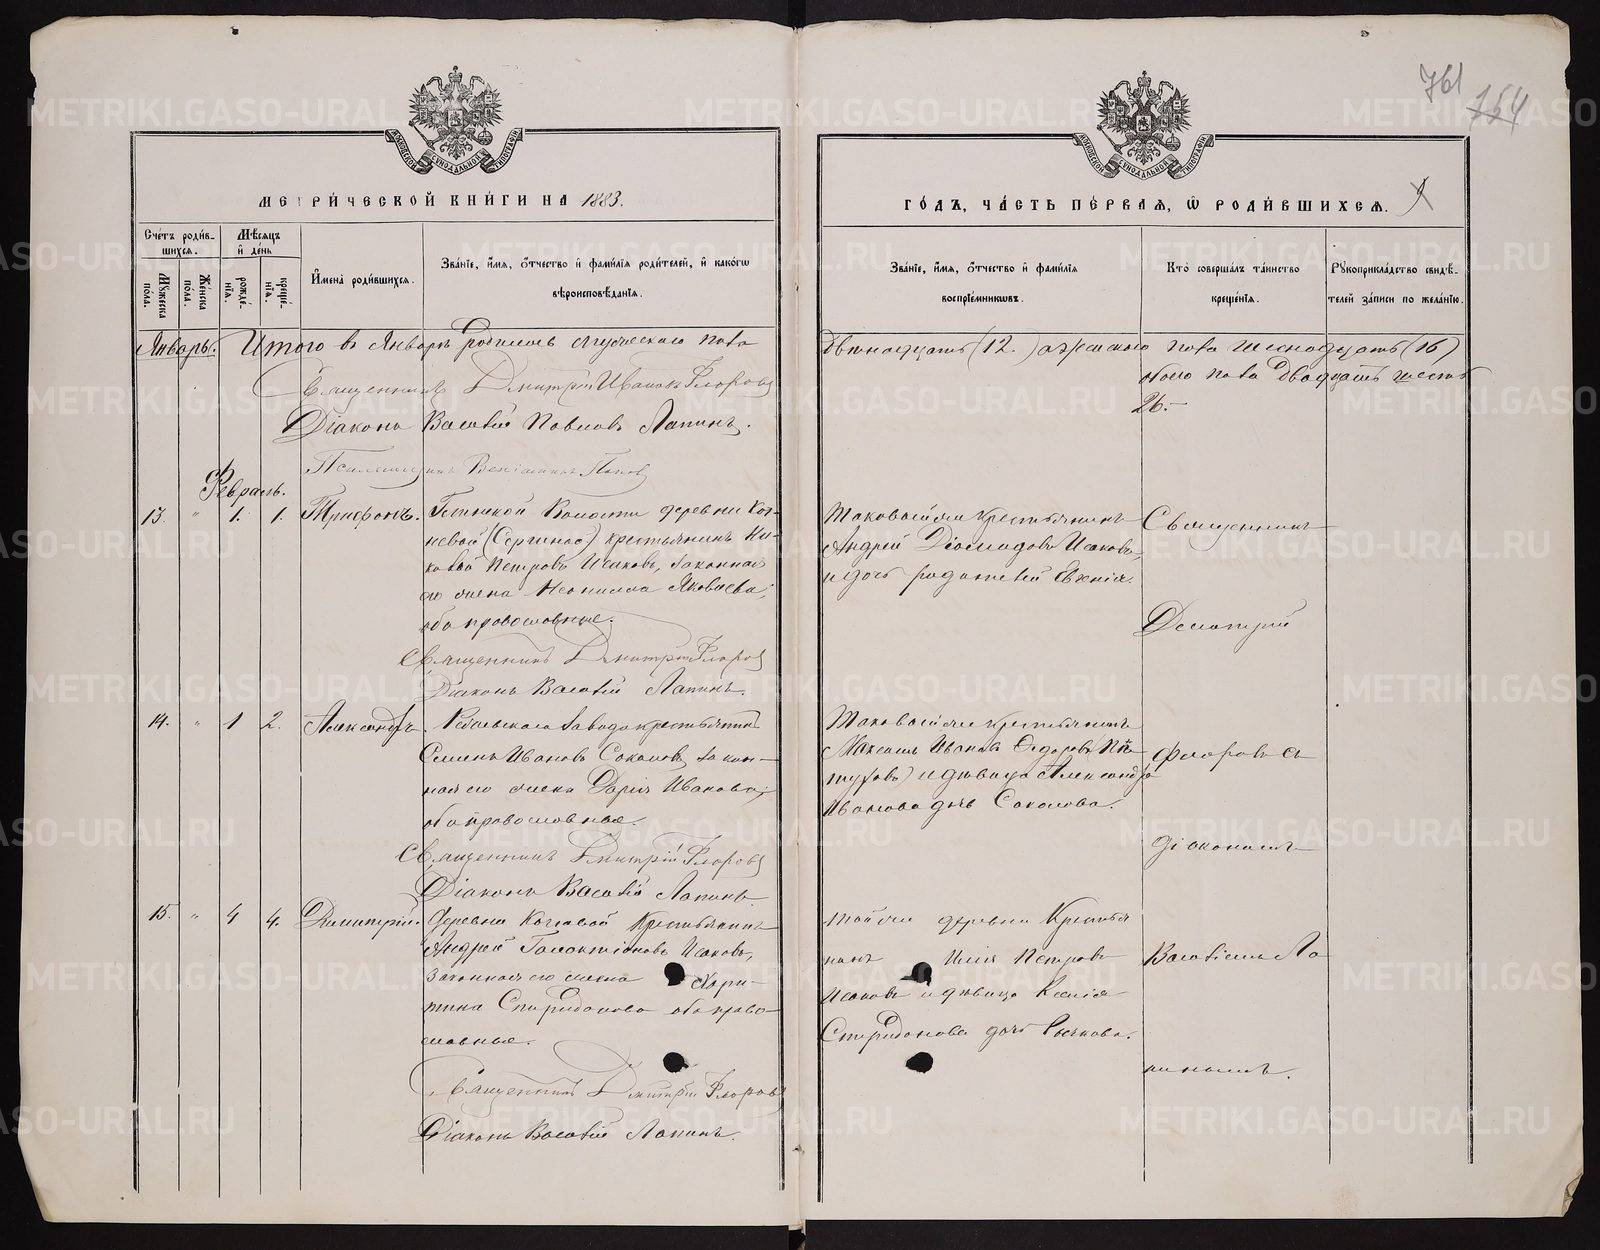 761 754
МОСКОВСКОЙ СѴНОДАЛЬНОЙ ТИПОГРАФІИ
МОСКОВСКОЙ СѴНОДАЛЬНОЙ ТИПОГРАФІИ
МЕТРИ́ЧЕСКОЙ КНИ́ГИ НА 1883.
ГО́ДЪ, ЧА́СТЬ ПЕ́РВАЯ, Ѡ РОДИ́ВШИХСЯ. 9
Сче́тъ роди́в-
шихся.
Мѣ́сяцъ
и де́нь
Му́жеска по́ла.
Же́нска по́ла.
рожде́-
нїя.
креще́-
нїя.
Имена̀ роди́вшихся.
Зва́нїе, и́мя, о́тчество и фами́лїя роди́телей, и како́гѡ
вѣроисповѣ́данїя.
Зва́нїе, и́мя, о́тчество и фами́лїя
воспрїе́мникѡвъ.
Кто̀ соверша́лъ та́инство
креще́нїя.
Рукоприкла́дство свидѣ́-
телей за́писи по жела́нїю.
Январь. Итого въ Январѣ родилось мужескаго пола
двѣнадцать (12.) женскаго пола шеснадцать (16)
обоего пола двадцать
26.
Священникъ Димитрій Ивановъ Флоровъ
Діаконъ Василій Павловъ Лапинъ.
Псаломщикъ Веніаминъ Попов
Февраль.
13. " 1. 1. Трифонъ.
Глинской Волости деревни Ког-
невой (Сергиной) крестьянинъ Ни-
колай Петровъ Исаковъ, законная
его жена Неонилла Яковлева,
оба православные.
Священникъ Димитрій Флоровъ
Діаконъ Василій Лапинъ.
Таковойже крестьянинъ
Андрей Діомидовъ Исаковъ,
и дочь родителей Евгенія.
Священникъ
Димитрій
14. " 1 2. Александръ.
завода крестьянинъ
Семенъ Ивановъ Соколовъ, закон-
ная его жена Дарія Иванова;
оба православные.
Священникъ Димитрій Флоровъ
Діаконъ Василій Лапинъ
Таковойже крестьянинъ
Ивановъ Ѳедоровъ (Пѣ-
туховъ) и дѣвица Александра
Иванова дочь Соколова.
Флоровъ съ
діакономъ
15. " 4 4. Димитрій.
Деревни Когневой Крестьянинъ
Андрей Галактіоновъ Исаковъ,
законная его жена Хари-
тина Спиридонова оба право-
славные.
Священникъ Димитрій Флоровъ
Діаконъ Василій Лапинъ.
тойже деревни Крестья
нинъ Илія Петровъ
Исаковъ и дѣвица Ксенія
Спиридонова дочь
Василіемъ Ла
пинымъ.